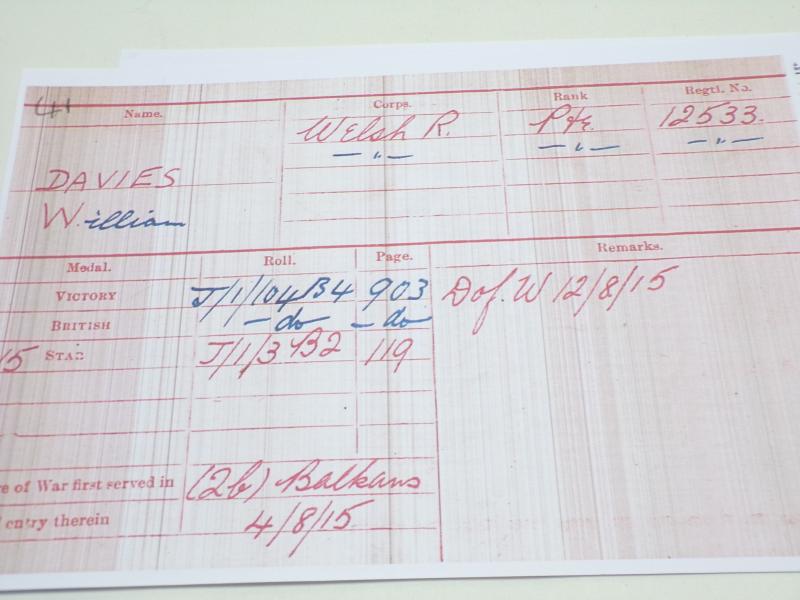 Name. Corps. Rank Regtl. No.
Welsh R. Pte. 12533.
— " — — " — — " —
DAVIES
William
Medal. Roll. Page. Remarks.
VICTORY J/1/104B4 903 D of. W 12/8/15
BRITISH — do — — do —
15 STAR J/1/3 B2 119
e of War first served in (2b) Balkans
entry therein 4/8/15.